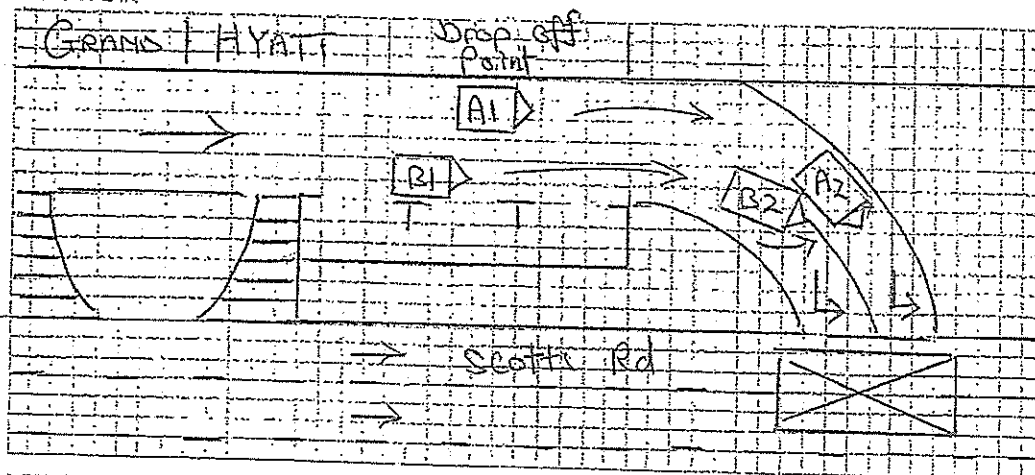 GRAND HYATT
Drop off
Point
A1
B1
B2
A2
Scotts Rd